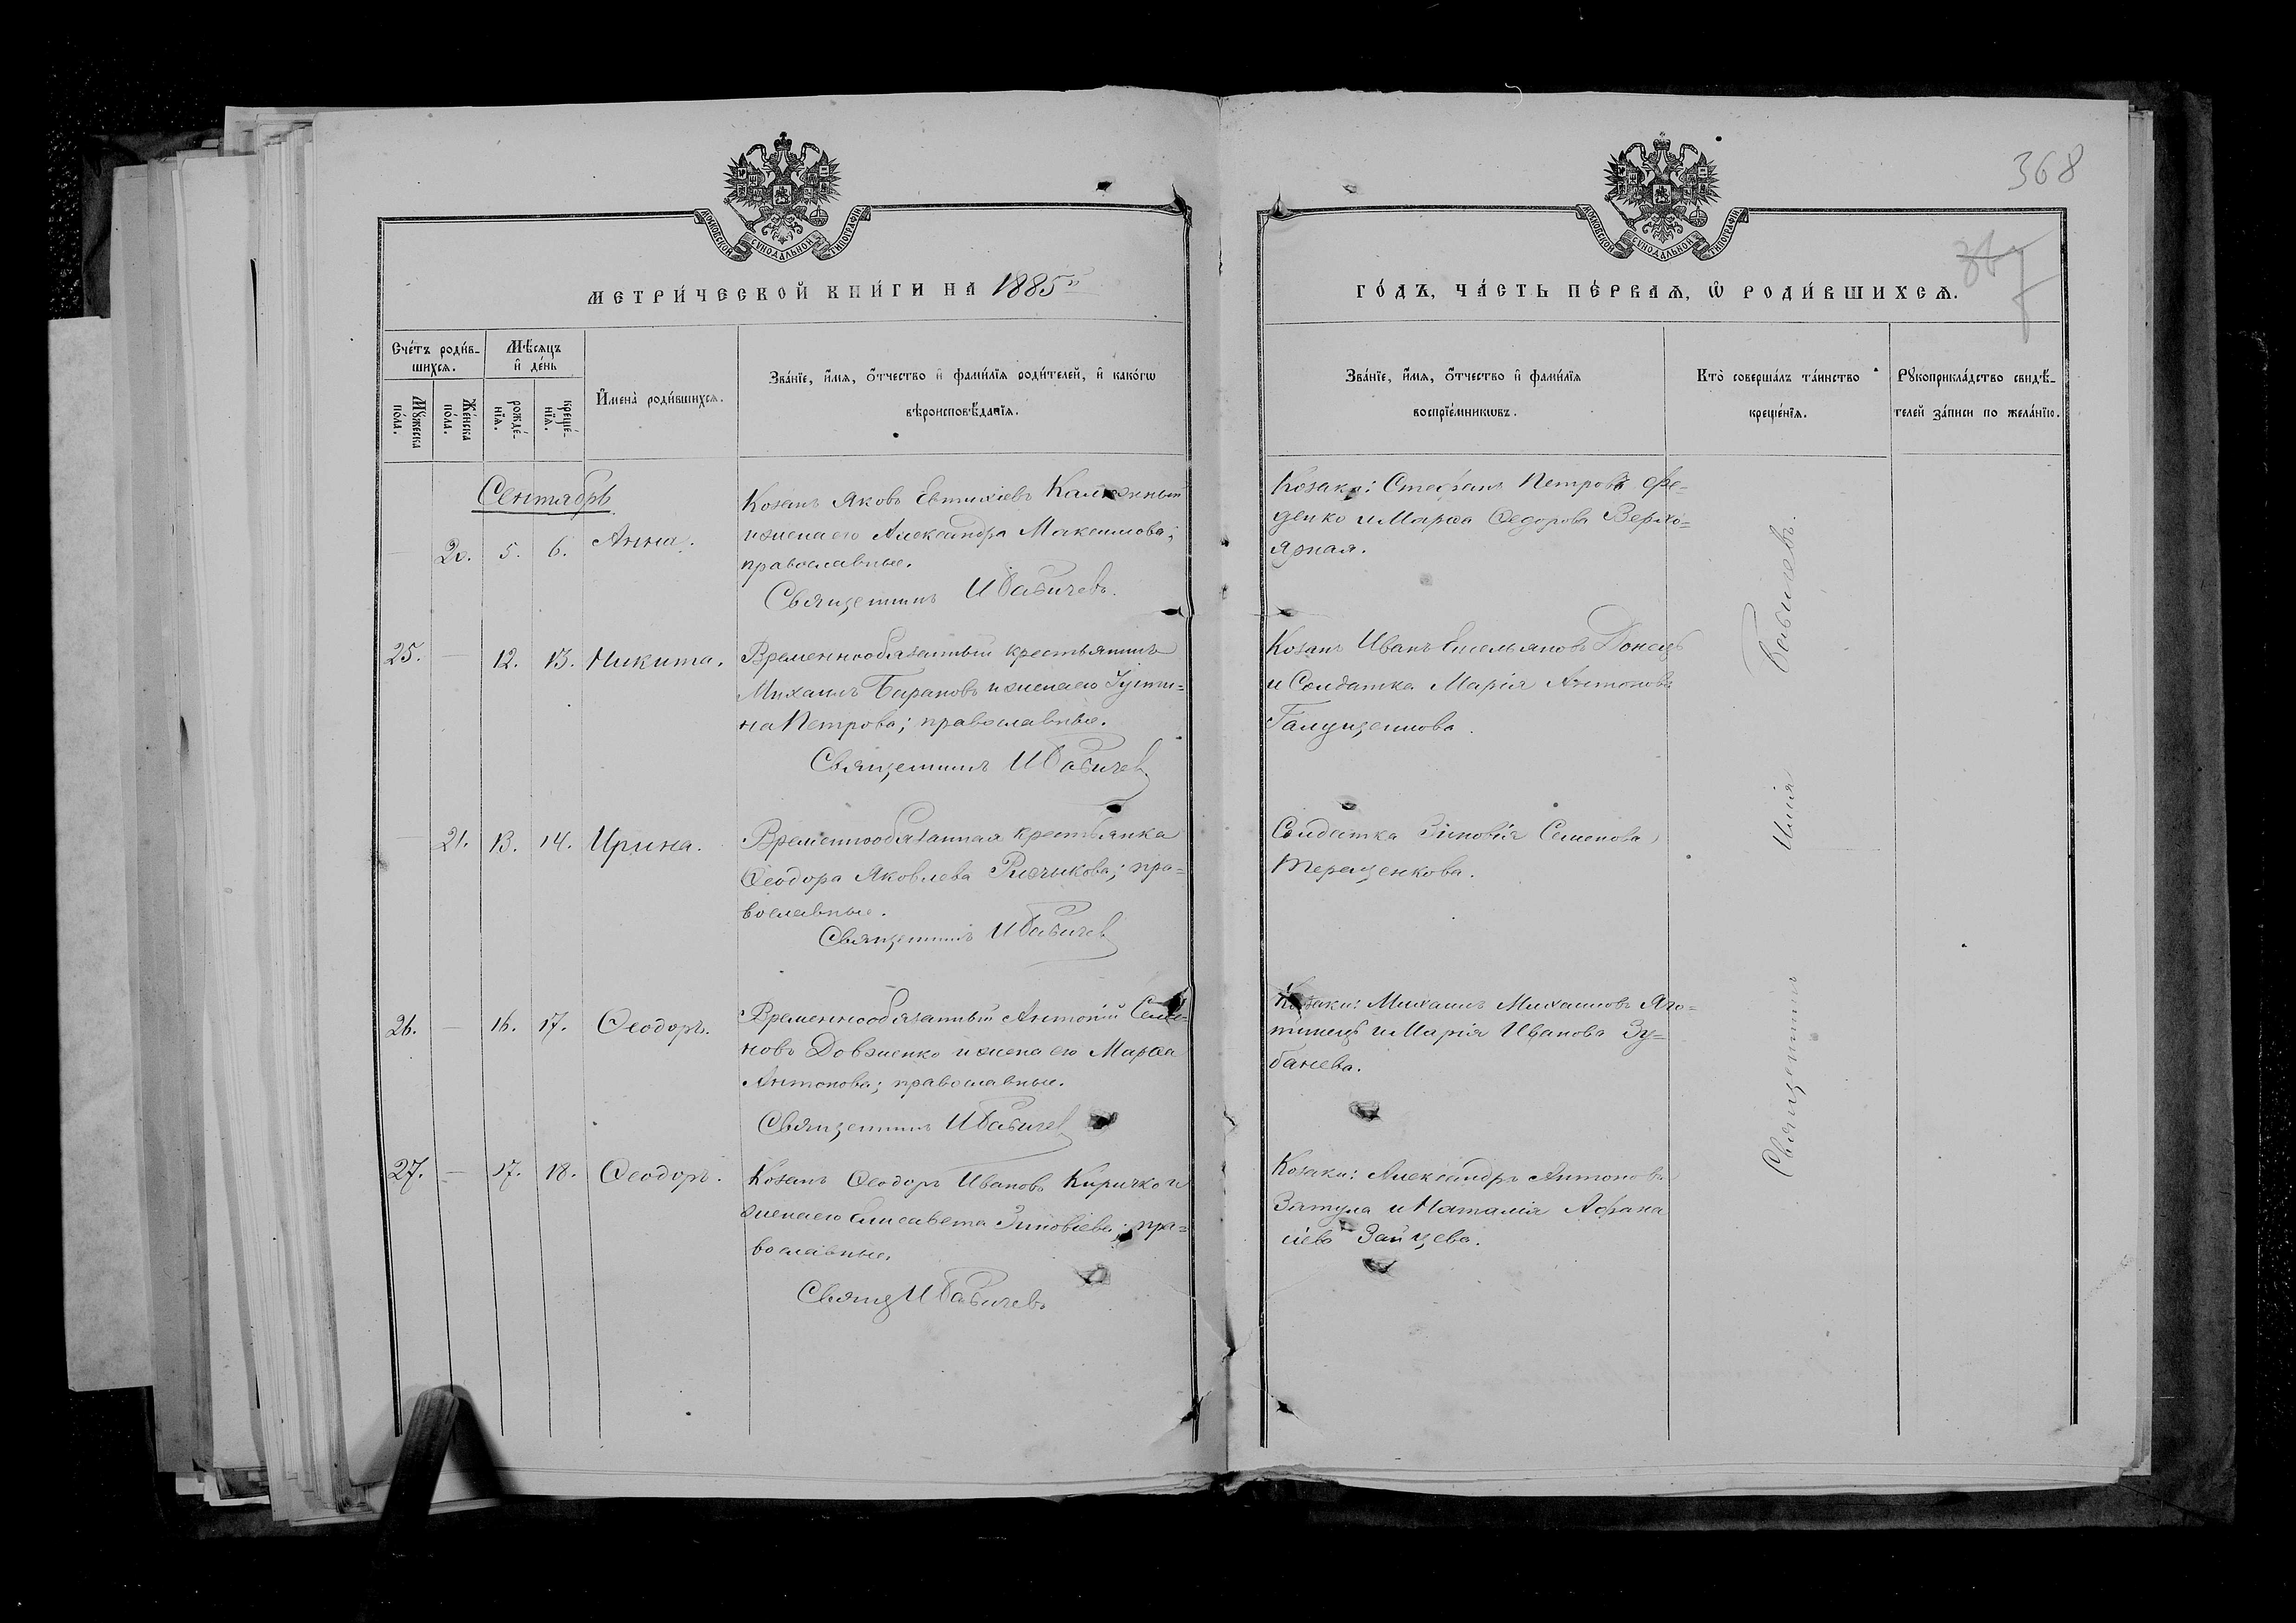 368
367
МОСКОВСКОЙ СѴНОДАЛЬНОЙ ТИПОГРАФІИ
МОСКОВСКОЙ СѴНОДАЛЬНОЙ ТИПОГРАФІИ
МЕТРИ́ЧЕСКОЙ КНИ́ГИ НА 1885й
ГО́ДЪ, ЧА́СТЬ ПЕ́РВАѦ, Ѽ РОДИ́ВШИХСѦ.
Сче́тъ роди́в-
шихсѧ.
Мѣ́сѧцъ
и҆ де́нь
Мꙋ́жеска
по́ла.
Же́нска
по́ла.
рожде́-
нїѧ.
креще́-
нїѧ.
И҆мена̀ роди́вшихсѧ.
Зва́нїе, и҆́мѧ, ѻ҆́тчество и҆ фами́лїѧ роди́телей, и҆ како́гѡ
вѣроисповѣ́данїѧ.
Зва́нїе, и҆́мѧ, ѻ҆́тчество и҆ фами́лїѧ
воспрїе́мникѡвъ.
Кто̀ соверша́лъ та́инство
креще́нїѧ.
Рꙋкоприкла́дство свидѣ́-
телей за́писи по жела́нїю.
Сентябрь
20. 5. 6. Анна.
Козакъ Яковъ Евтихіевъ
и жена его Александра Максимова;
православные.
Священникъ И Бабичевъ.
Козаки: Стефанъ Петровъ Фе-
денко и Марѳа Ѳедорова Верхо-
ярная.
25. — 12. 13. Никита.
Временнообязанный крестьянинъ
Михаилъ Барановъ и жена его Іусти-
на Петрова; православные.
Священникъ И Бабичевъ
Козакъ Иванъ Емельяновъ Донецъ
и Солдатка Марія Антонова
Галущенкова.
— 21. 13. 14. Ирина.
Временнообязанная крестьянка
Ѳеодора Яковлева пра-
вославные.
Священникъ И Бабичевъ
Солдатка Зиновія Семенова
Терещенкова.
26. — 16. 17. Ѳеодоръ.
Временнообязанный Антоній Семе-
новъ Довженко и жена его Марѳа
Антонова; православные.
Священникъ И Бабичевъ
Козаки: Михаилъ Михаиловъ Яго-
тинецъ и Марія Иванова Зу-
банева.
27. — 17. 18. Ѳеодоръ.
Козакъ Ѳеодоръ Ивановъ Киричко и
жена его Елисавета Зиновіева; пра-
вославные.
Свящ И Бабичевъ
Козаки: Александръ Антоновъ
Затула и Наталія Афана
сіева Зайцева.
Священникъ Илія Бабичевъ.